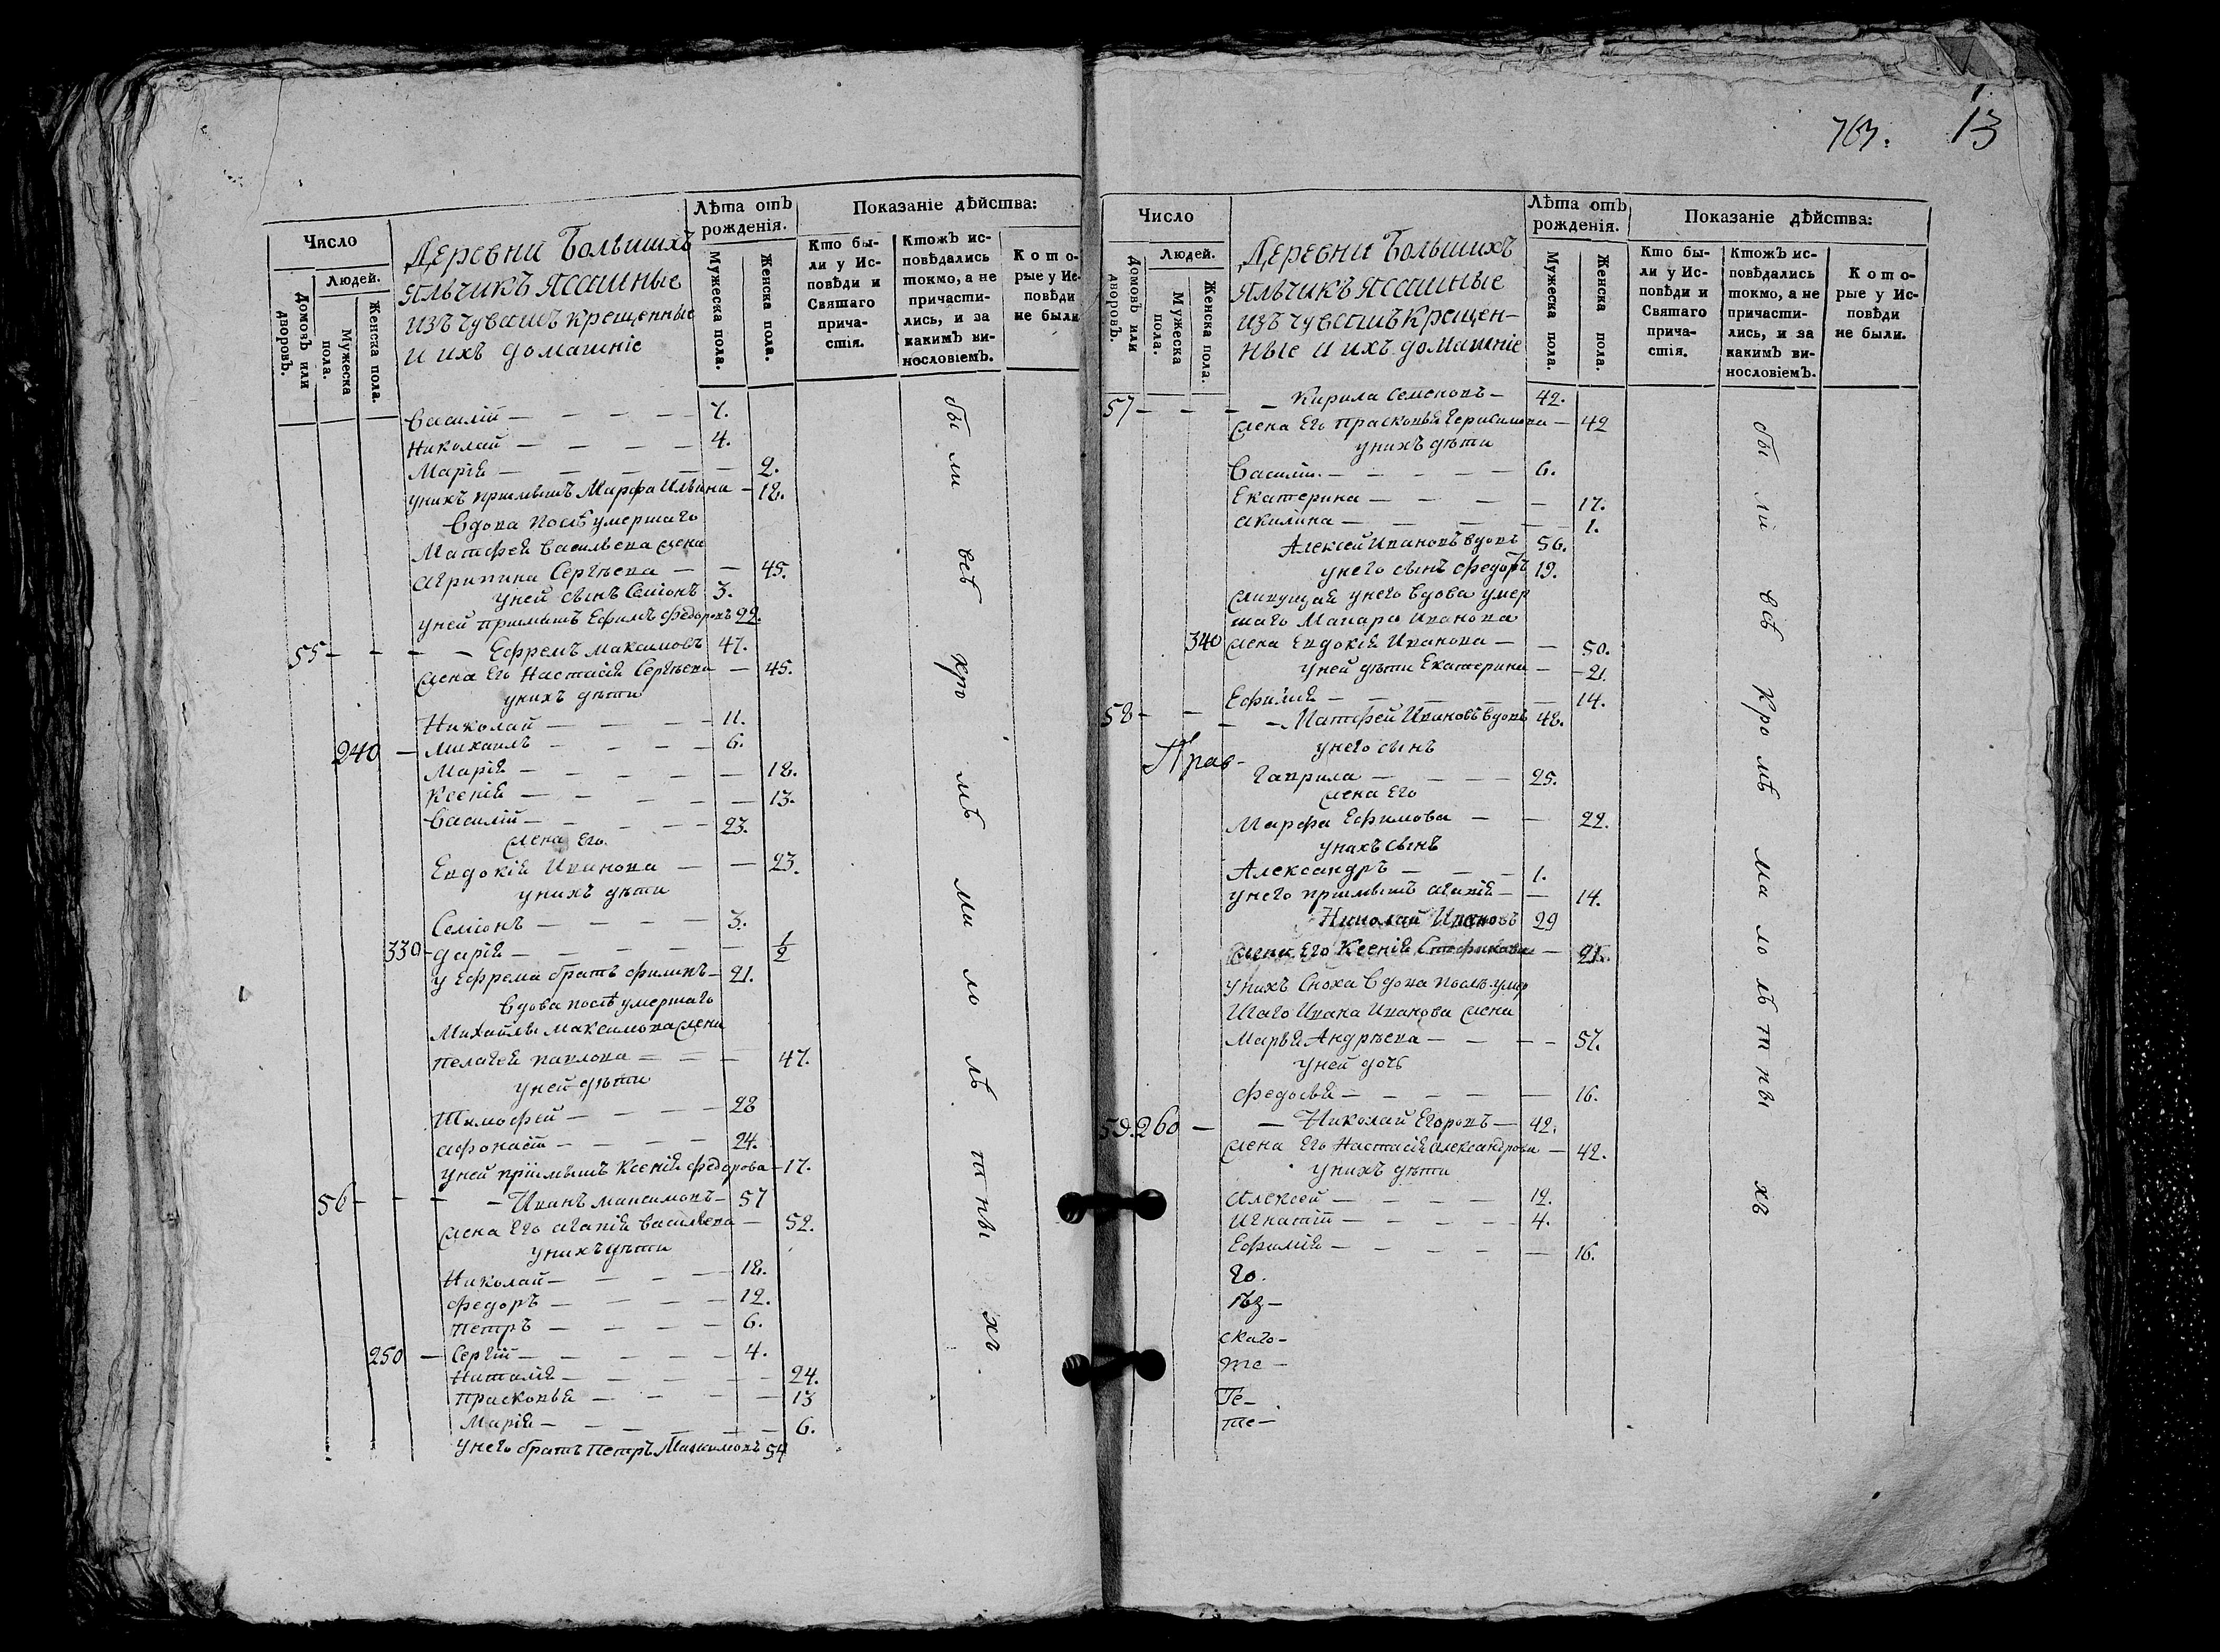 Число
Людей.
Домовъ или дворовъ.
Мужеска пола.
Женска пола.
Деревни Большихъ
Яльчикъ Ясашные
изъ чувашъ крещенные
и ихъ домашніе
Лѣта отъ рожденія.
Мужеска пола.
Женска пола.
Показаніе дѣйства:
Кто бы-
ли у Ис-
повѣди и
Святаго
прича-
стія.
Ктожъ ис-
повѣдались
токмо, а не
причасти-
лись, и за
какимъ ви-
нословіемъ.
Кото-
рые у Ис-
повѣди
не были
Василій — 7.
Николай — 4.
Марія — 2.
у нихъ приимышъ Марфа Ильина — 18.
Вдова послѣ умершаго
Матфея Васильева жена
Агрипина Сергѣева — 45.
у ней сынъ Семіонъ 3.
у ней приимышъ Ефимъ Федоровъ 22.
55 — Ефремъ Максимовъ 47.
жена его Настасія Сергѣева — 45.
у нихъ дѣти
Николай — 11.
240 — Михаилъ — 6.
Марія — 18.
Ксенія — 13.
Василій — 23.
жена его
Евдокія Иванова — 23.
у нихъ дѣти
Семіонъ — 3.
330 — Дарія — 1/2
у Ефрема братъ Филипъ — 21.
Вдова послѣ умершаго
Михайлы Максимова жена
Пелагея Павлова — 47.
у ней дѣти
Тимофей — 28
Афонасій — 24.
у ней приимышъ Ксенія Федорова — 17.
56 — Иванъ Максимовъ — 57
жена его Агапія Васильева — 52.
у нихъ дѣти
Николай — 18.
Федоръ — 12.
Петръ — 6.
250 — Сергій — 4.
Наталія — 24.
Прасковья — 13
Марія — 6.
у него братъ Петръ Максимовъ 54
были всѣ кромѣ малолѣтныхъ
763. 13
Число
Людей.
Домовъ или дворовъ.
Мужеска пола.
Женска пола.
Деревни Большихъ
Яльчикъ Ясашные
изъ чувашъ крещен-
ные и ихъ домашніе
Лѣта отъ рожденія.
Мужеска пола.
Женска пола.
Показаніе дѣйства:
Кто бы-
ли у Ис-
повѣди и
Святаго
прича-
стія.
Ктожъ ис-
повѣдались
токмо, а не
причасти-
лись, и за
какимъ ви-
нословіемъ.
Кото-
рые у Ис-
повѣди
не были.
57 — Кирила Семеновъ — 42.
жена его Прасковья Герасимова — 42
у нихъ дѣти
Василій — 6.
Екатерина — 17.
Акилина — 1.
Алексей Ивановъ вдовъ 56.
у него сынъ Федоръ 19.
живущая у него вдова умер
шаго Макара Иванова
340 жена Евдокія Иванова — 50.
у ней дѣти Екатерина — 21.
Ефимія — 14.
58 — Матфей Ивановъ вдовъ 48.
у него сынъ
Прав-
Гаврила — 25.
жена его
Марфа Ефимова — 22.
у нихъ сынъ
Александръ — 1.
у него приимышъ Агапія — 14.
Николай Ивановъ 29
жена его Ксенія — 21.
у нихъ сноха вдова послѣ умер
шаго Ивана Иванова жена
Марья Андрѣева — 57.
у ней дочь
Федосья — 16.
59. 260 — Николай Егоровъ — 42.
жена его Настасія Александрова — 42.
у нихъ дѣти
Алексей — 12.
Игнатій — 4.
Ефимія — 16.
го.
ѣз —
скаго —
те —
Ге —
те —
были всѣ кромѣ малолѣтныхъ